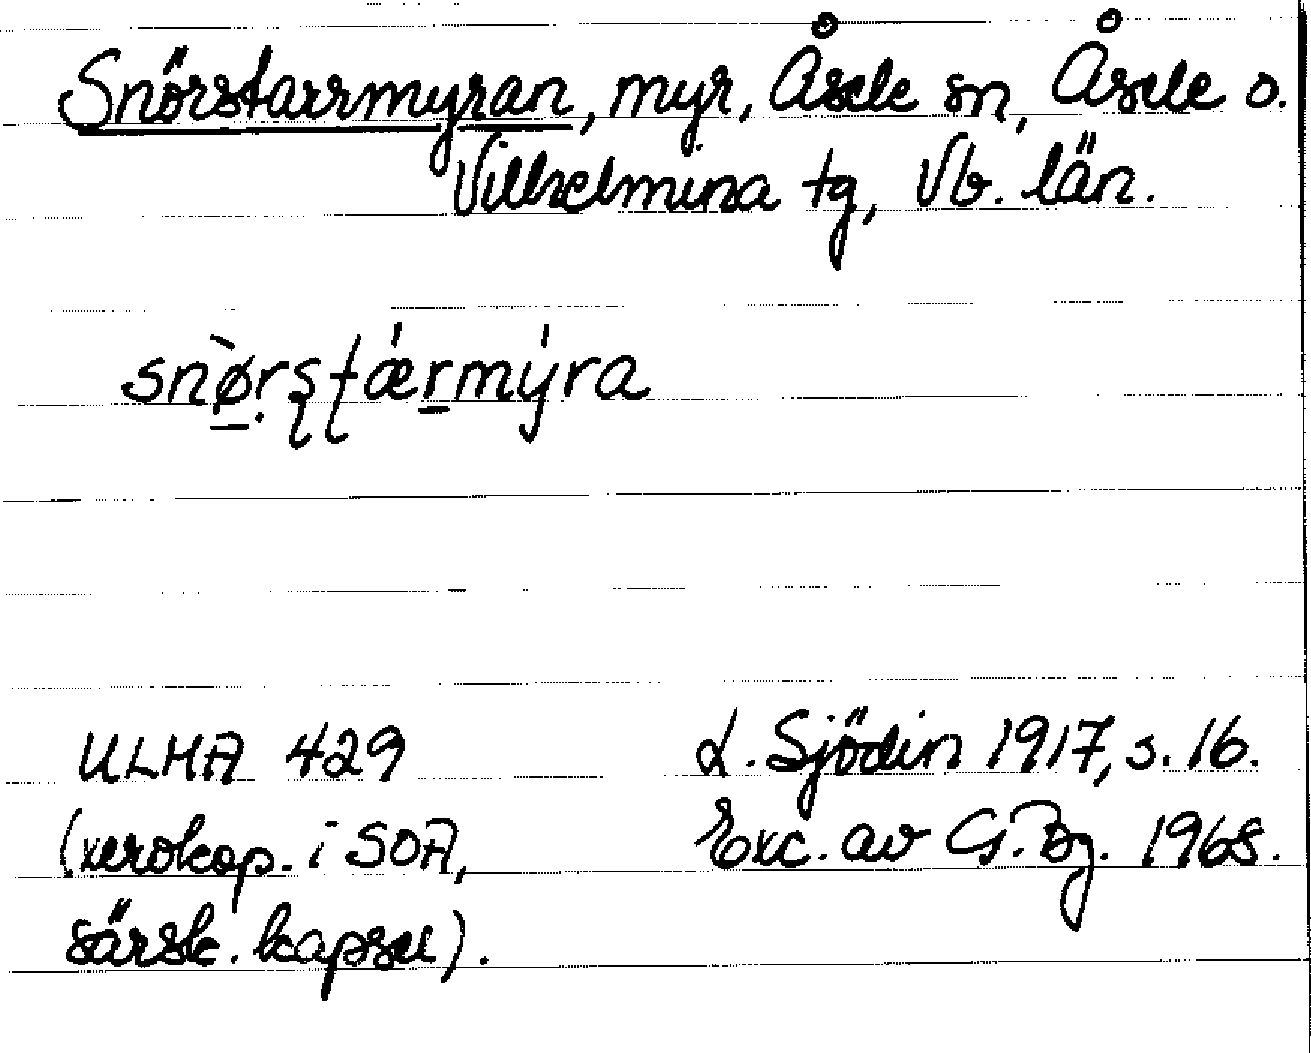 Snörstarrmyran, myr, Åsele sn, Åsele o.
Vilhelmina tg, Vb. län.
snø̠̀rʂʈǽr̠mýra
ULMA 429
(xerokop. i SOA,
särsk. kapsel).
L. Sjödin 1917, s. 16.
Exc. av G. Bg. 1968.